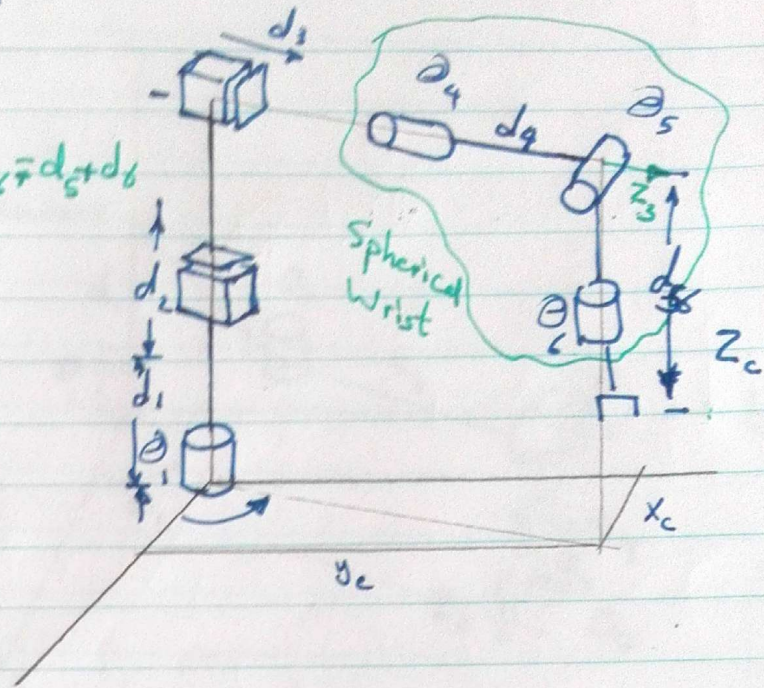 d₃
θ₄
θ₅
d₄
= d₅+d₆
Z₃
Spherical
Wrist
d₂
θ₆
Z_c
d₁
θ₁
x_c
y_c